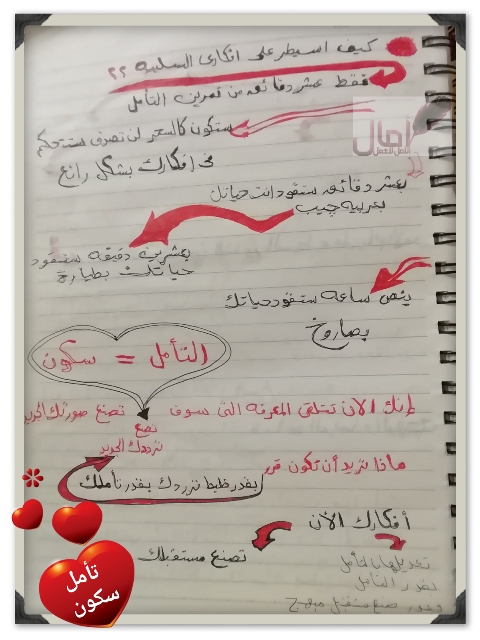 كيف اسيطر على افكارى السلبيه ؟؟
فقط عشر دقائق من تمرين التأمل
ستكون كالسحر لن تصدق ستتحكم
فى أفكارك بشكل رائع
آمال
بعشر دقائق ستقود انت حياتك
بعربيه جيب
بعشرين دقيقه ستقود
حياتك بطيارة
بنص ساعه ستقود حياتك
بصاروخ
التأمل = سكون
إنك الآن تتلقى المعرفه التى سوف تصنع صورتك الجديد
تصنع
ترددك الجديد
ماذا تريد أن تكون قرر
بقدر ظبط ترددك بقدر تأملك
أفكارك الآن
تصنع مستقبلك
بقدر التأمل
تأمل
سكون